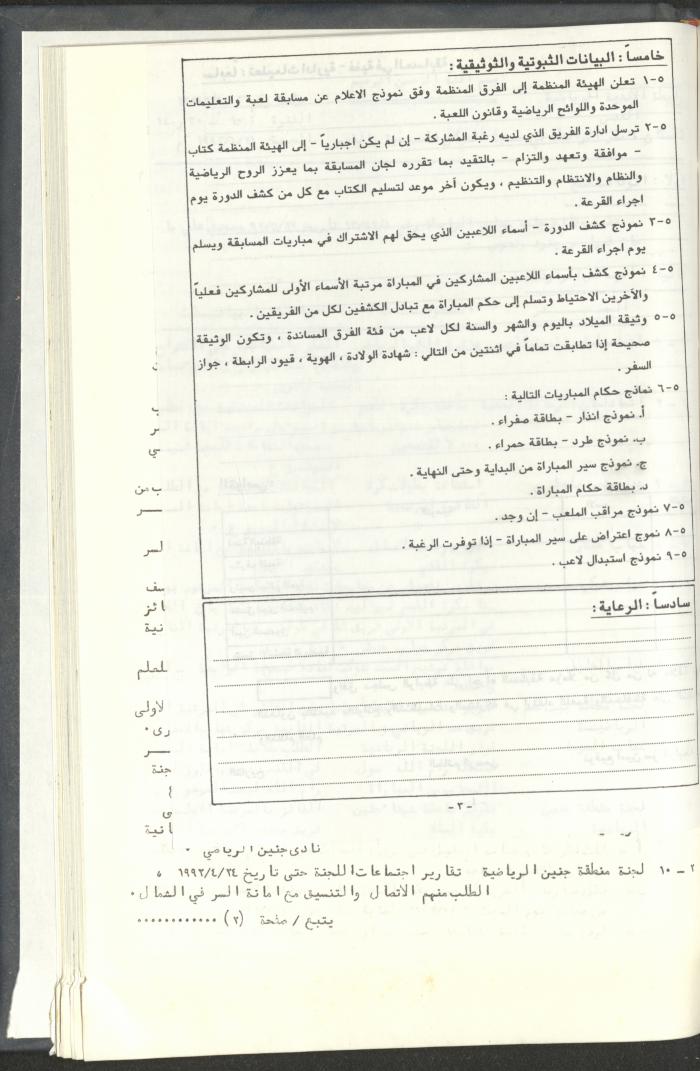 خامساً : البيانات الثبوتية والتوثيقية :
٥-١ تعلن الهيئة المنظمة إلى الفرق المنظمة وفق نموذج الاعلام عن مسابقة لعبة والتعليمات
الموحدة واللوائح الرياضية وقانون اللعبة .
٥-٢ ترسل ادارة الفريق الذي لديه رغبة المشاركة - إن لم يكن اجبارياً - إلى الهيئة المنظمة كتاب
- موافقة وتعهد والتزام - بالتقيد بما تقرره لجان المسابقة بما يعزز الروح الرياضية
والنظام والانتظام والتنظيم ، ويكون آخر موعد لتسليم الكتاب مع كل من كشف الدورة يوم
اجراء القرعة .
٥-٣ نموذج كشف الدورة - أسماء اللاعبين الذي يحق لهم الاشتراك في مباريات المسابقة ويسلم
يوم اجراء القرعة .
٥-٤ نموذج كشف بأسماء اللاعبين المشاركين في المباراة مرتبة الأسماء الأولى للمشاركين فعلياً
والآخرين الاحتياط وتسلم إلى حكم المباراة مع تبادل الكشفين لكل من الفريقين .
٥-٥ وثيقة الميلاد باليوم والشهر والسنة لكل لاعب من فئة الفرق المساندة ، وتكون الوثيقة
صحيحة إذا تطابقت تماماً في اثنتين من التالي : شهادة الولادة ، الهوية ، قيود الرابطة ، جواز
السفر .
٥-٦ نماذج حكام المباريات التالية :
أ. نموذج انذار - بطاقة صفراء .
ب. نموذج طرد - بطاقة حمراء .
ج. نموذج سير المباراة من البداية وحتى النهاية .
د. بطاقة حكام المباراة .
٥-٧ نموذج مراقب الملعب - إن وجد .
٥-٨ نموج اعتراض على سير المباراة - إذا توفرت الرغبة .
٥-٩ نموذج استبدال لاعب .
سادساً : الرعاية :
-٣-
نادى جنين الرياضي .
٢ - ١٠ لجنة منطقة جنين الرياضية تقارير اجتماعات اللجنة حتى تاريخ ١٩٩٢/٤/٢٤ ه
الطلب منهم الاتصال والتنسيق مع امانة السر في الشمال .
يتبع / صفحة (٢) ............